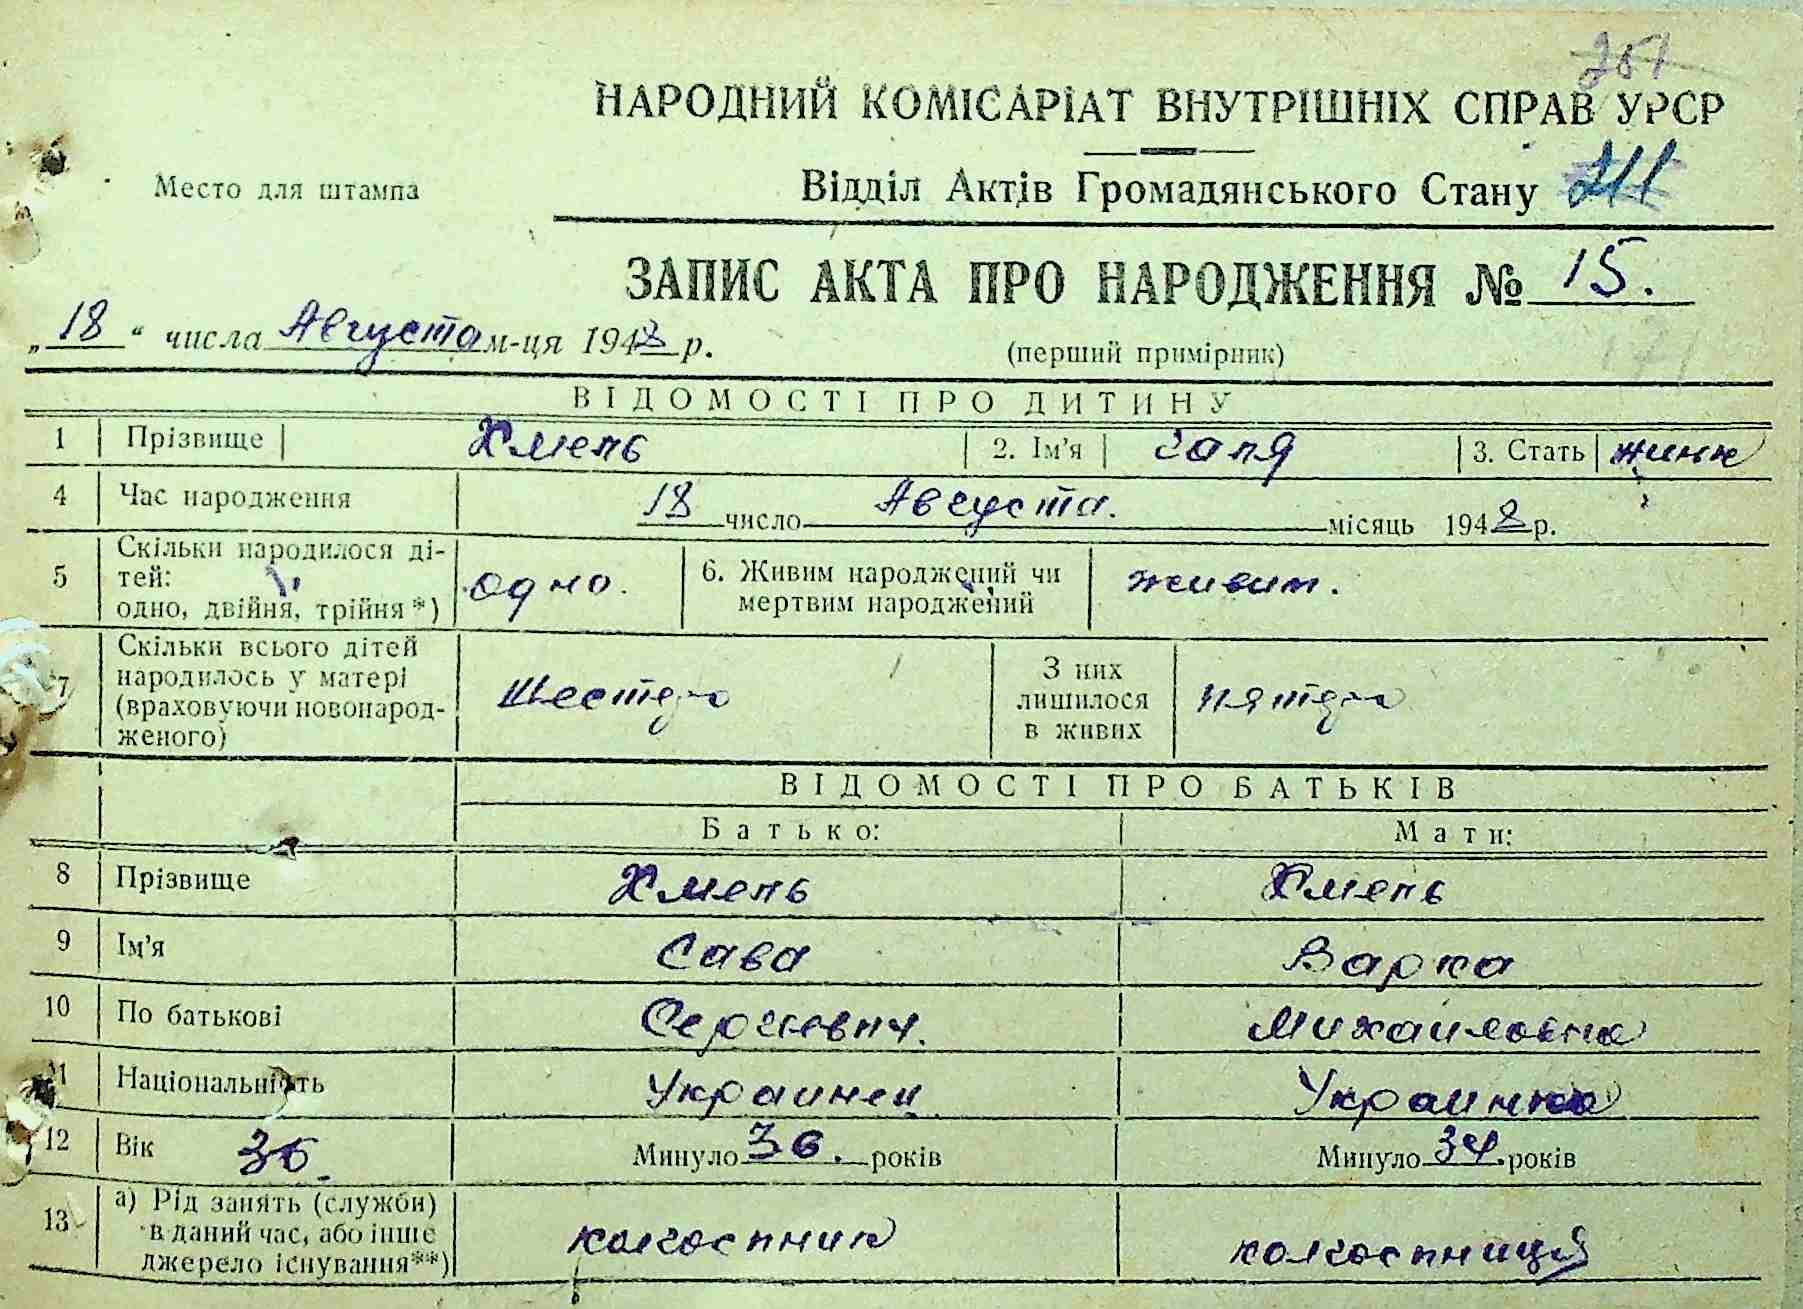 251
НАРОДНИЙ КОМІСАРІАТ ВНУТРІШНІХ СПРАВ УРСР
Место для штампа
Відділ Актів Громадянського Стану 211
ЗАПИС АКТА ПРО НАРОДЖЕННЯ № 15.
„18“ числа Августа м-ця 1948 р.
(перший примірник)
ВІДОМОСТІ ПРО ДИТИНУ
1 Прізвище Хмель 2. Ім'я Галя 3. Стать жинк
4 Час народження 18 число Августа. місяць 1948 р.
5 Скільки народилося ді-
тей:
одно, двійня, трійня *) одно. 6. Живим народжений чи
мертвим народжений живим.
7 Скільки всього дітей
народилось у матері
(враховуючи новонарод-
женого) Шестеро З них
лишилося
в живих пятеро
ВІДОМОСТІ ПРО БАТЬКІВ
Батько: Мати:
8 Прізвище Хмель Хмель
9 Ім'я Сава Варка
10 По батькові Сергиевич. Михаиловна
11 Національність Украинец Украинка
12 Вік 36. Минуло 36. років Минуло 34. років
13 а) Рід занять (служби)
в даний час, або інше
джерело існування**) колгоспник колгоспниця